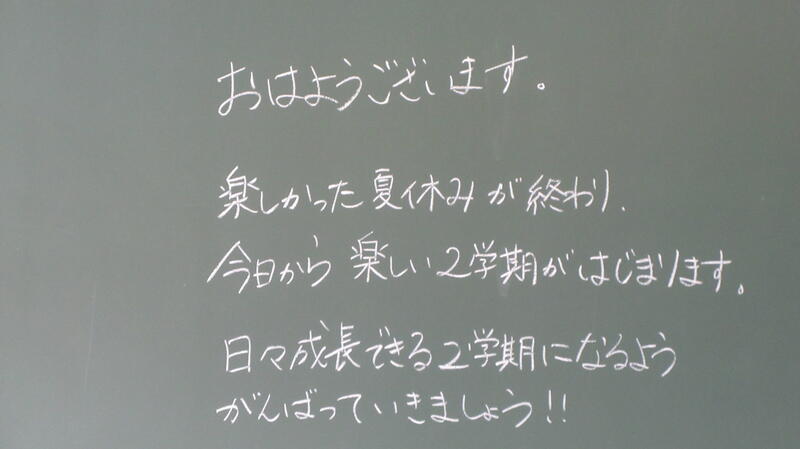 おはようございます。
楽しかった夏休みが終わり、
今日から楽しい2学期がはじまります。
日々成長できる2学期になるよう
がんばっていきましょう!!